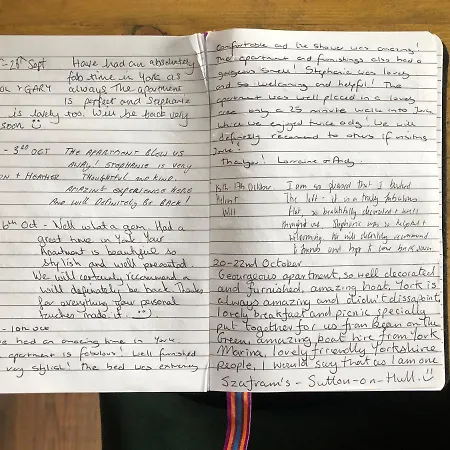 - 28th Sept Have had an absolutely
fab time in York as
& GARY always. The apartment
is perfect and Stephanie
is lovely too. Will be back very
soon
- 3RD OCT THE APARTMENT BLEW US
AWAY! STEPHANIE IS VERY
+ HEATHER THOUGHTFUL AND KIND.
AMAZING EXPERIENCE HERE
AND WILL DEFINITELY BE BACK!
6th Oct - Well what a gem, Had a
great time in York. Your
Apartment is beautiful so
stylish and well presented.
We will certainly recommend &
will definately be back. Thanks
for everything your personal
touches made it.
- 10th Oct
had an amazing time in York
apartment is fabulous! Well furnished
very stylish! The bed was extremely
comfortable and the shower was amazing!
The apartment and furnishings also had a
gorgeous smell! Stephanie was lovely
and so welcoming and helpful! The
apartment was well placed in a lovely
area only a 25 minute walk into York
which we enjoyed twice a day! We will
definetly recommend to others if visiting
York!
Lorraine & Andy.
15th-17th October I am so pleased that I booked
The loft - it is a truly fabulous
Will flat, so beautifully decorated & well
Stephanie was so helpful &
welcoming. We will definitely recommend
to friends and hope to come back soon
20-22nd October
Georgeous apartment, so well decorated
and furnished, amazing host. York is
always amazing and didn't dissapoint,
lovely breakfast and picnic specially
put together for us from Bean on the
Green, amazing boat hire from York
Marina, lovely friendly Yorkshire
people, I would say that as I am one
Szafram's - Sutton-on-Hull.